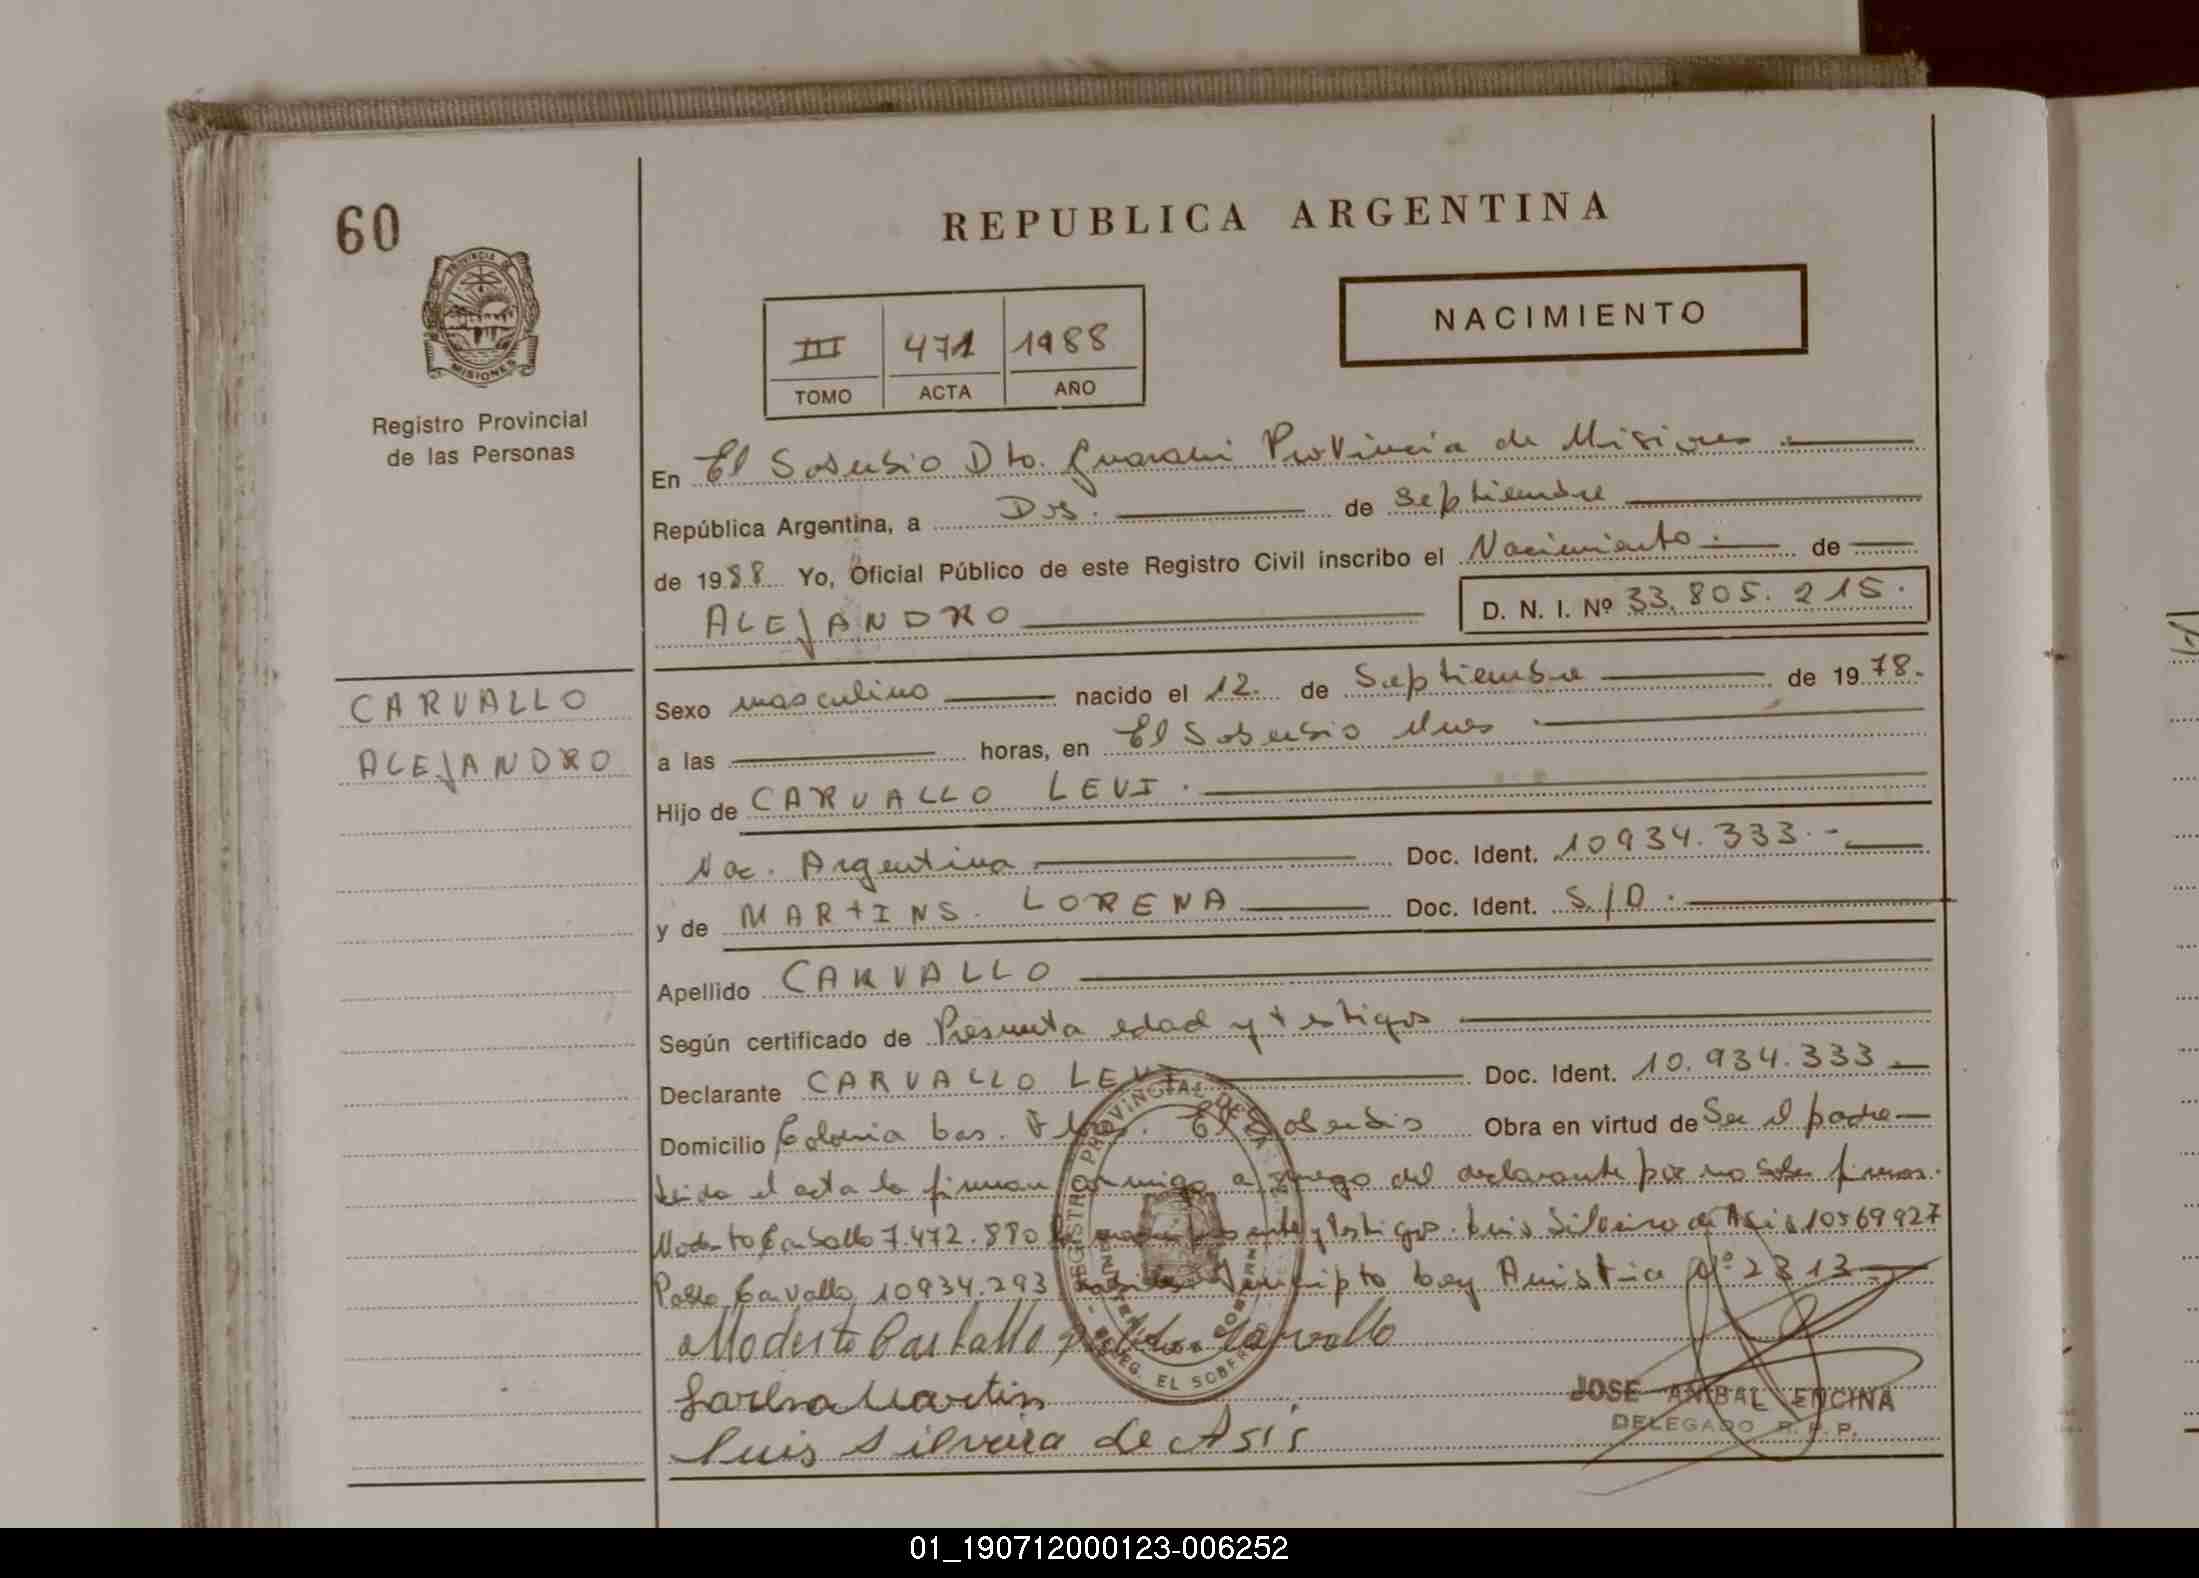 60
REPUBLICA ARGENTINA
PROVINCIA DE
MISIONES
III 471 1988
TOMO ACTA AÑO
NACIMIENTO
Registro Provincial
de las Personas
En El Soberbio Dto. Guarani Provincia de Misiones
República Argentina, a Dos. de Septiembre
de 1988 Yo, Oficial Público de este Registro Civil inscribo el Nacimiento. de
ALEJANDRO D. N. I. Nº 33.805.215.
CARVALLO
ALEJANDRO
Sexo masculino nacido el 12. de Septiembre de 1978.
a las horas, en El Soberbio Mnes
Hijo de CARVALLO LEVI.
Nac. Argentina Doc. Ident. 10934.333.-
y de MARTINS. LORENA Doc. Ident. S/D.
Apellido CARVALLO
Según certificado de Presunta edad y testigos
Declarante CARVALLO LEVI Doc. Ident. 10.934.333
Domicilio Colonia El Soberbio Obra en virtud de Ser el padre
Leida el acta la firman conmigo a ruego del declarante por no saber firmar.
Modesto Carballo 7.472.880 la madre y testigos. Luis Silveira de Asis 10569927
Pablo Carvallo 10934.293 Inscripto Ley Amistia Nº 2313
Modesto Carballo Carvallo
Lorena Martin
Luis Silveira de Asis
REGISTRO PROVINCIAL DE LAS
DELEG. EL SOBERBIO
JOSE ANIBAL ENCINA
DELEGADO R. P. P.
01_190712000123-006252